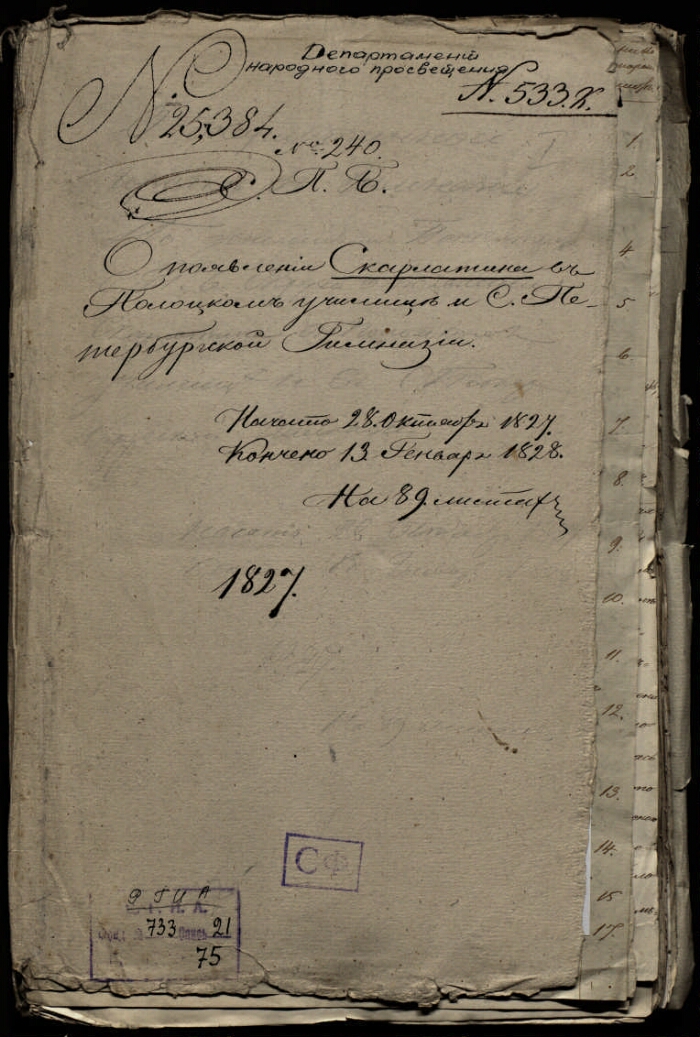 Департаментъ
народного просвещения
N. 533.К.
N. 25,384.
No. 240.
С. П. Б.
О появленіи Скарлатина въ
Полоцкомъ училищѣ и С. Пе-
тербургской Гимназіи.
Начато 28. Октября 1827.
Кончено 13 Генваря 1828.
На 89. листах
1827.
СФ
РГИА
Фонд 733 Опись 21
75
1
2
4
5
6
7.
8.
9.
10.
11.
12.
13.
14.
15
17.